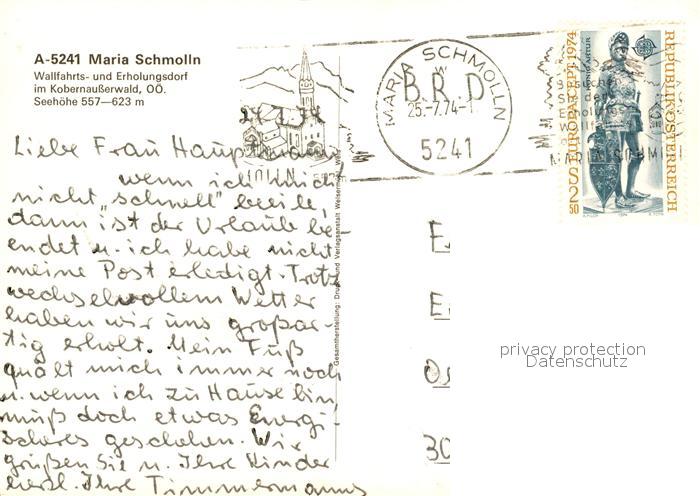 A-5241 Maria Schmolln
Wallfahrts- und Erholungsdorf
im Kobernaußerwald, OÖ.
Seehöhe 557—623 m
MARIA SCHMOLLN
W
25.-7.74-1
5241
B.R.D
EUROPA CEPT 1974
KÖNIG ARTUR
S 2 50
REPUBLIK ÖSTERREICH
24.7.74
Liebe Frau Hauptmann
wenn ich mich
nicht "schnell" beeile,
dann ist der Urlaub be-
endet u. ich habe nicht
meine Post erledigt. Trotz
wechselvollem Wetter
haben wir uns großar-
tig erholt. Mein Fuß
quält mich immer noch
u. wenn ich zu Hause bin,
muß doch etwas Energi-
scheres geschehen. Wir
grüßen Sie u. Ihre Kinder
herzl. Ihre Timmermanns
Gesamtherstellung: Druck- und Verlagsanstalt Welsermühl, Wels
30
privacy protection
Datenschutz